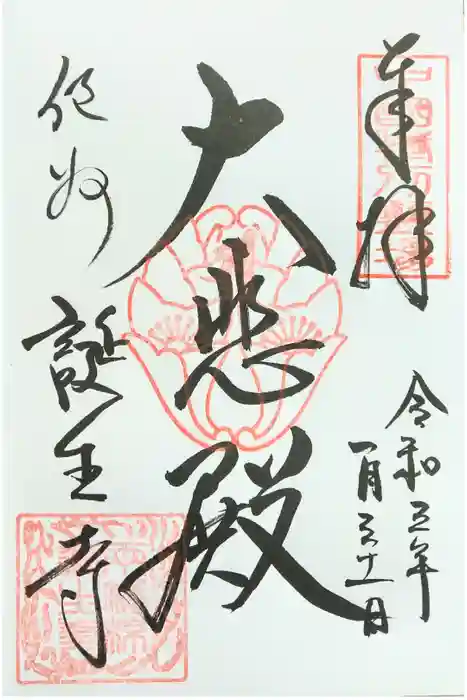 奉拝
令和五年
一月三十一日
大悲殿
作州
誕生寺